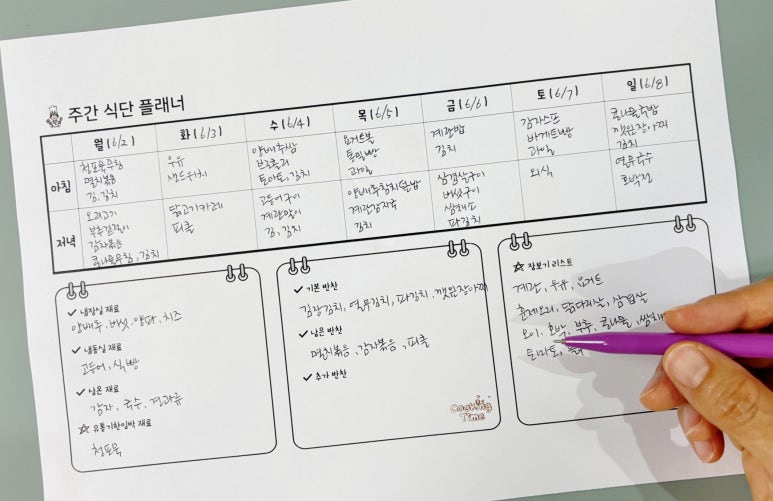 주간 식단 플래너
월(6/2) 화(6/3) 수(6/4) 목(6/5) 금(6/6) 토(6/7) 일(6/8)
아침
청포묵무침
멸치볶음
김, 김치
우유
샌드위치
양배추쌈
브로콜리
토마토, 김치
요거트볼
통밀빵
과일
계란밥
김치
감자스프
바게트빵
과일
콩나물국밥
깻잎장아찌
김치
저녁
오리고기
부추겉절이
감자볶음
콩나물무침, 김치
닭고기카레
피클
고등어구이
계란말이
김, 김치
양배추참치덮밥
계란감자국
김치
삼겹살구이
버섯구이
쌈채소
파김치
외식
열무국수
호박전
냉장실 재료
양배추, 버섯, 양파, 치즈
냉동실 재료
고등어, 식빵
실온 재료
감자, 국수, 견과류
유통기한임박 재료
청포묵
기본 반찬
김장김치, 열무김치, 파김치, 깻잎장아찌
남은 반찬
멸치볶음, 감자볶음, 피클
추가 반찬
Cooking
Time
장보기 리스트
계란, 우유, 요거트
훈제오리, 닭다리살, 삼겹살
오이, 호박, 부추, 콩나물, 쌈채
토마토,